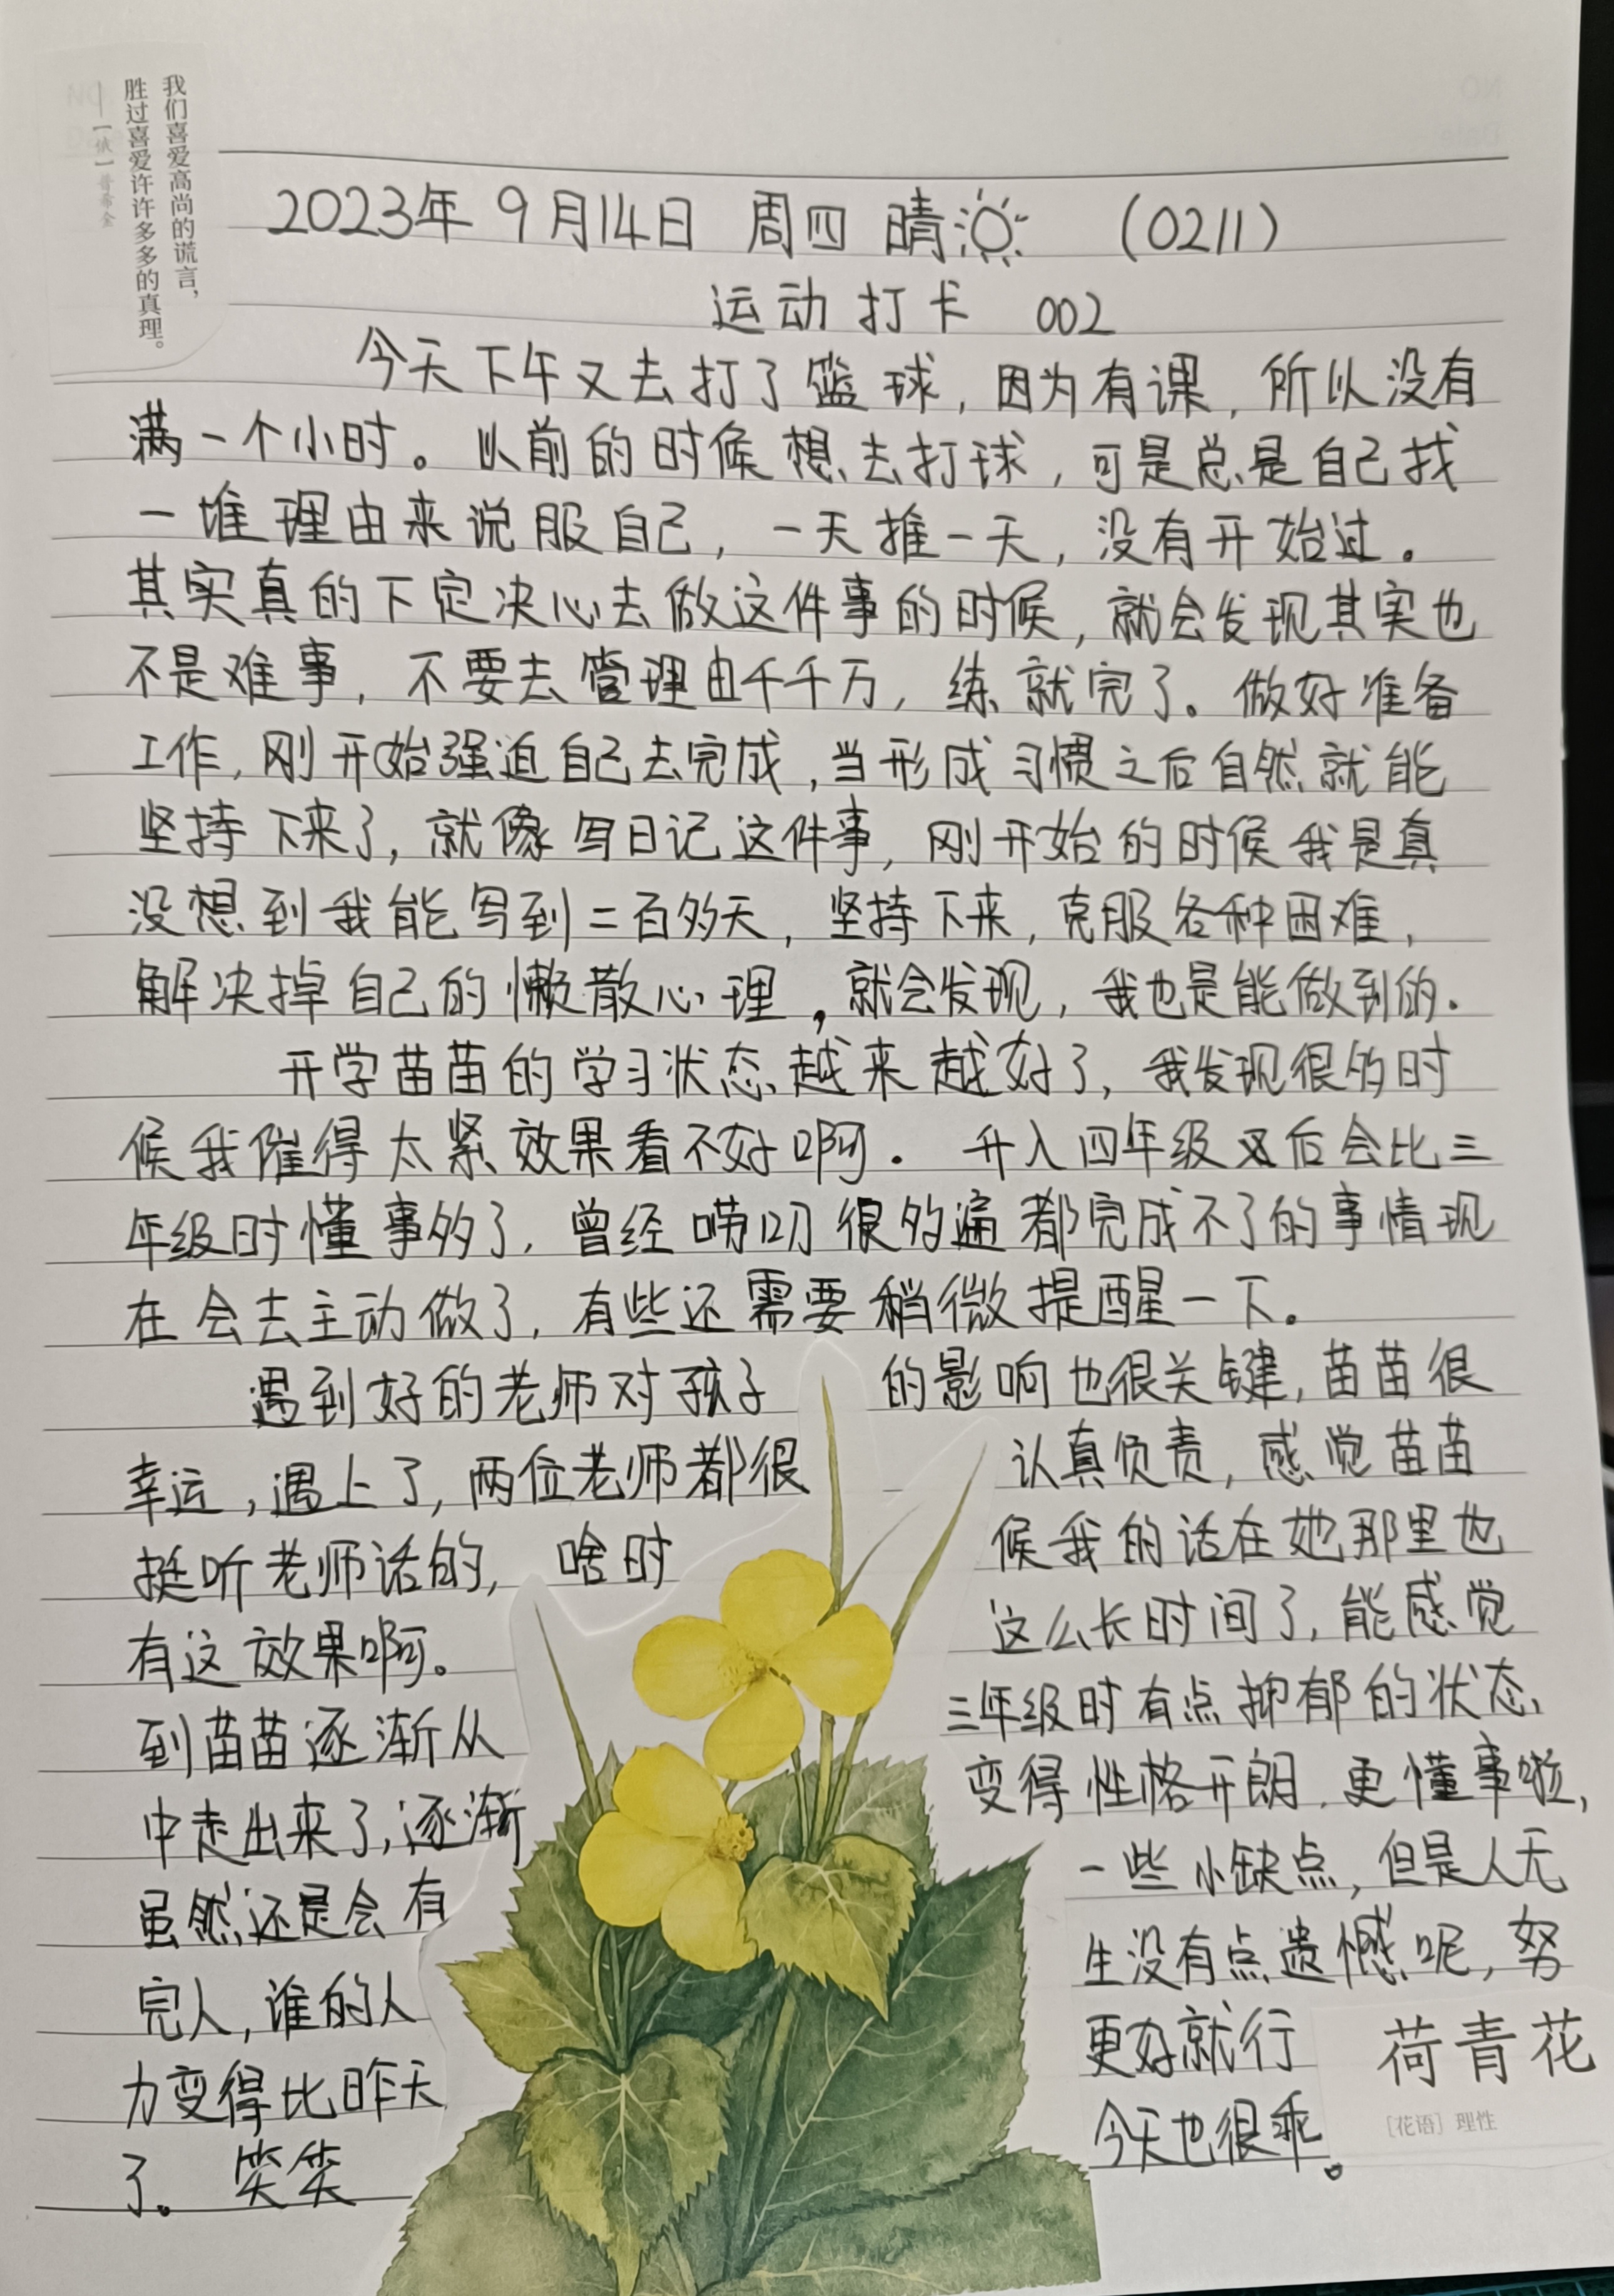 我们喜爱高尚的谎言，
胜过喜爱许许多多的真理。
——［俄］普希金
2023年9月14日 周四 晴 (0211)
运动打卡 002
今天下午又去打了篮球，因为有课，所以没有
满一个小时。以前的时候想去打球，可是总是自己找
一堆理由来说服自己，一天推一天，没有开始过。
其实真的下定决心去做这件事的时候，就会发现其实也
不是难事，不要去管理由千千万，练就完了。做好准备
工作，刚开始强迫自己去完成，当形成习惯之后自然就能
坚持下来了，就像写日记这件事，刚开始的时候我是真
没想到我能写到二百多天，坚持下来，克服各种困难，
解决掉自己的懒散心理，就会发现，我也是能做到的.
开学苗苗的学习状态越来越好了，我发现很多时
候我催得太紧效果看不好啊. 升入四年级后会比三
年级时懂事多了，曾经唠叨很多遍都完成不了的事情现
在会去主动做了，有些还需要稍微提醒一下。
遇到好的老师对孩子的影响也很关键，苗苗很
幸运，遇上了，两位老师都很认真负责，感觉苗苗
挺听老师话的，啥时候我的话在她那里也
有这效果啊。这么长时间了，能感觉
到苗苗逐渐从三年级时有点抑郁的状态
中走出来了，逐渐变得性格开朗，更懂事啦，
虽然还是会有一些小缺点，但是人无
完人，谁的人生没有点遗憾呢，努
力变得比昨天更好就行
了。笑笑今天也很乖。
荷青花
［花语］理性